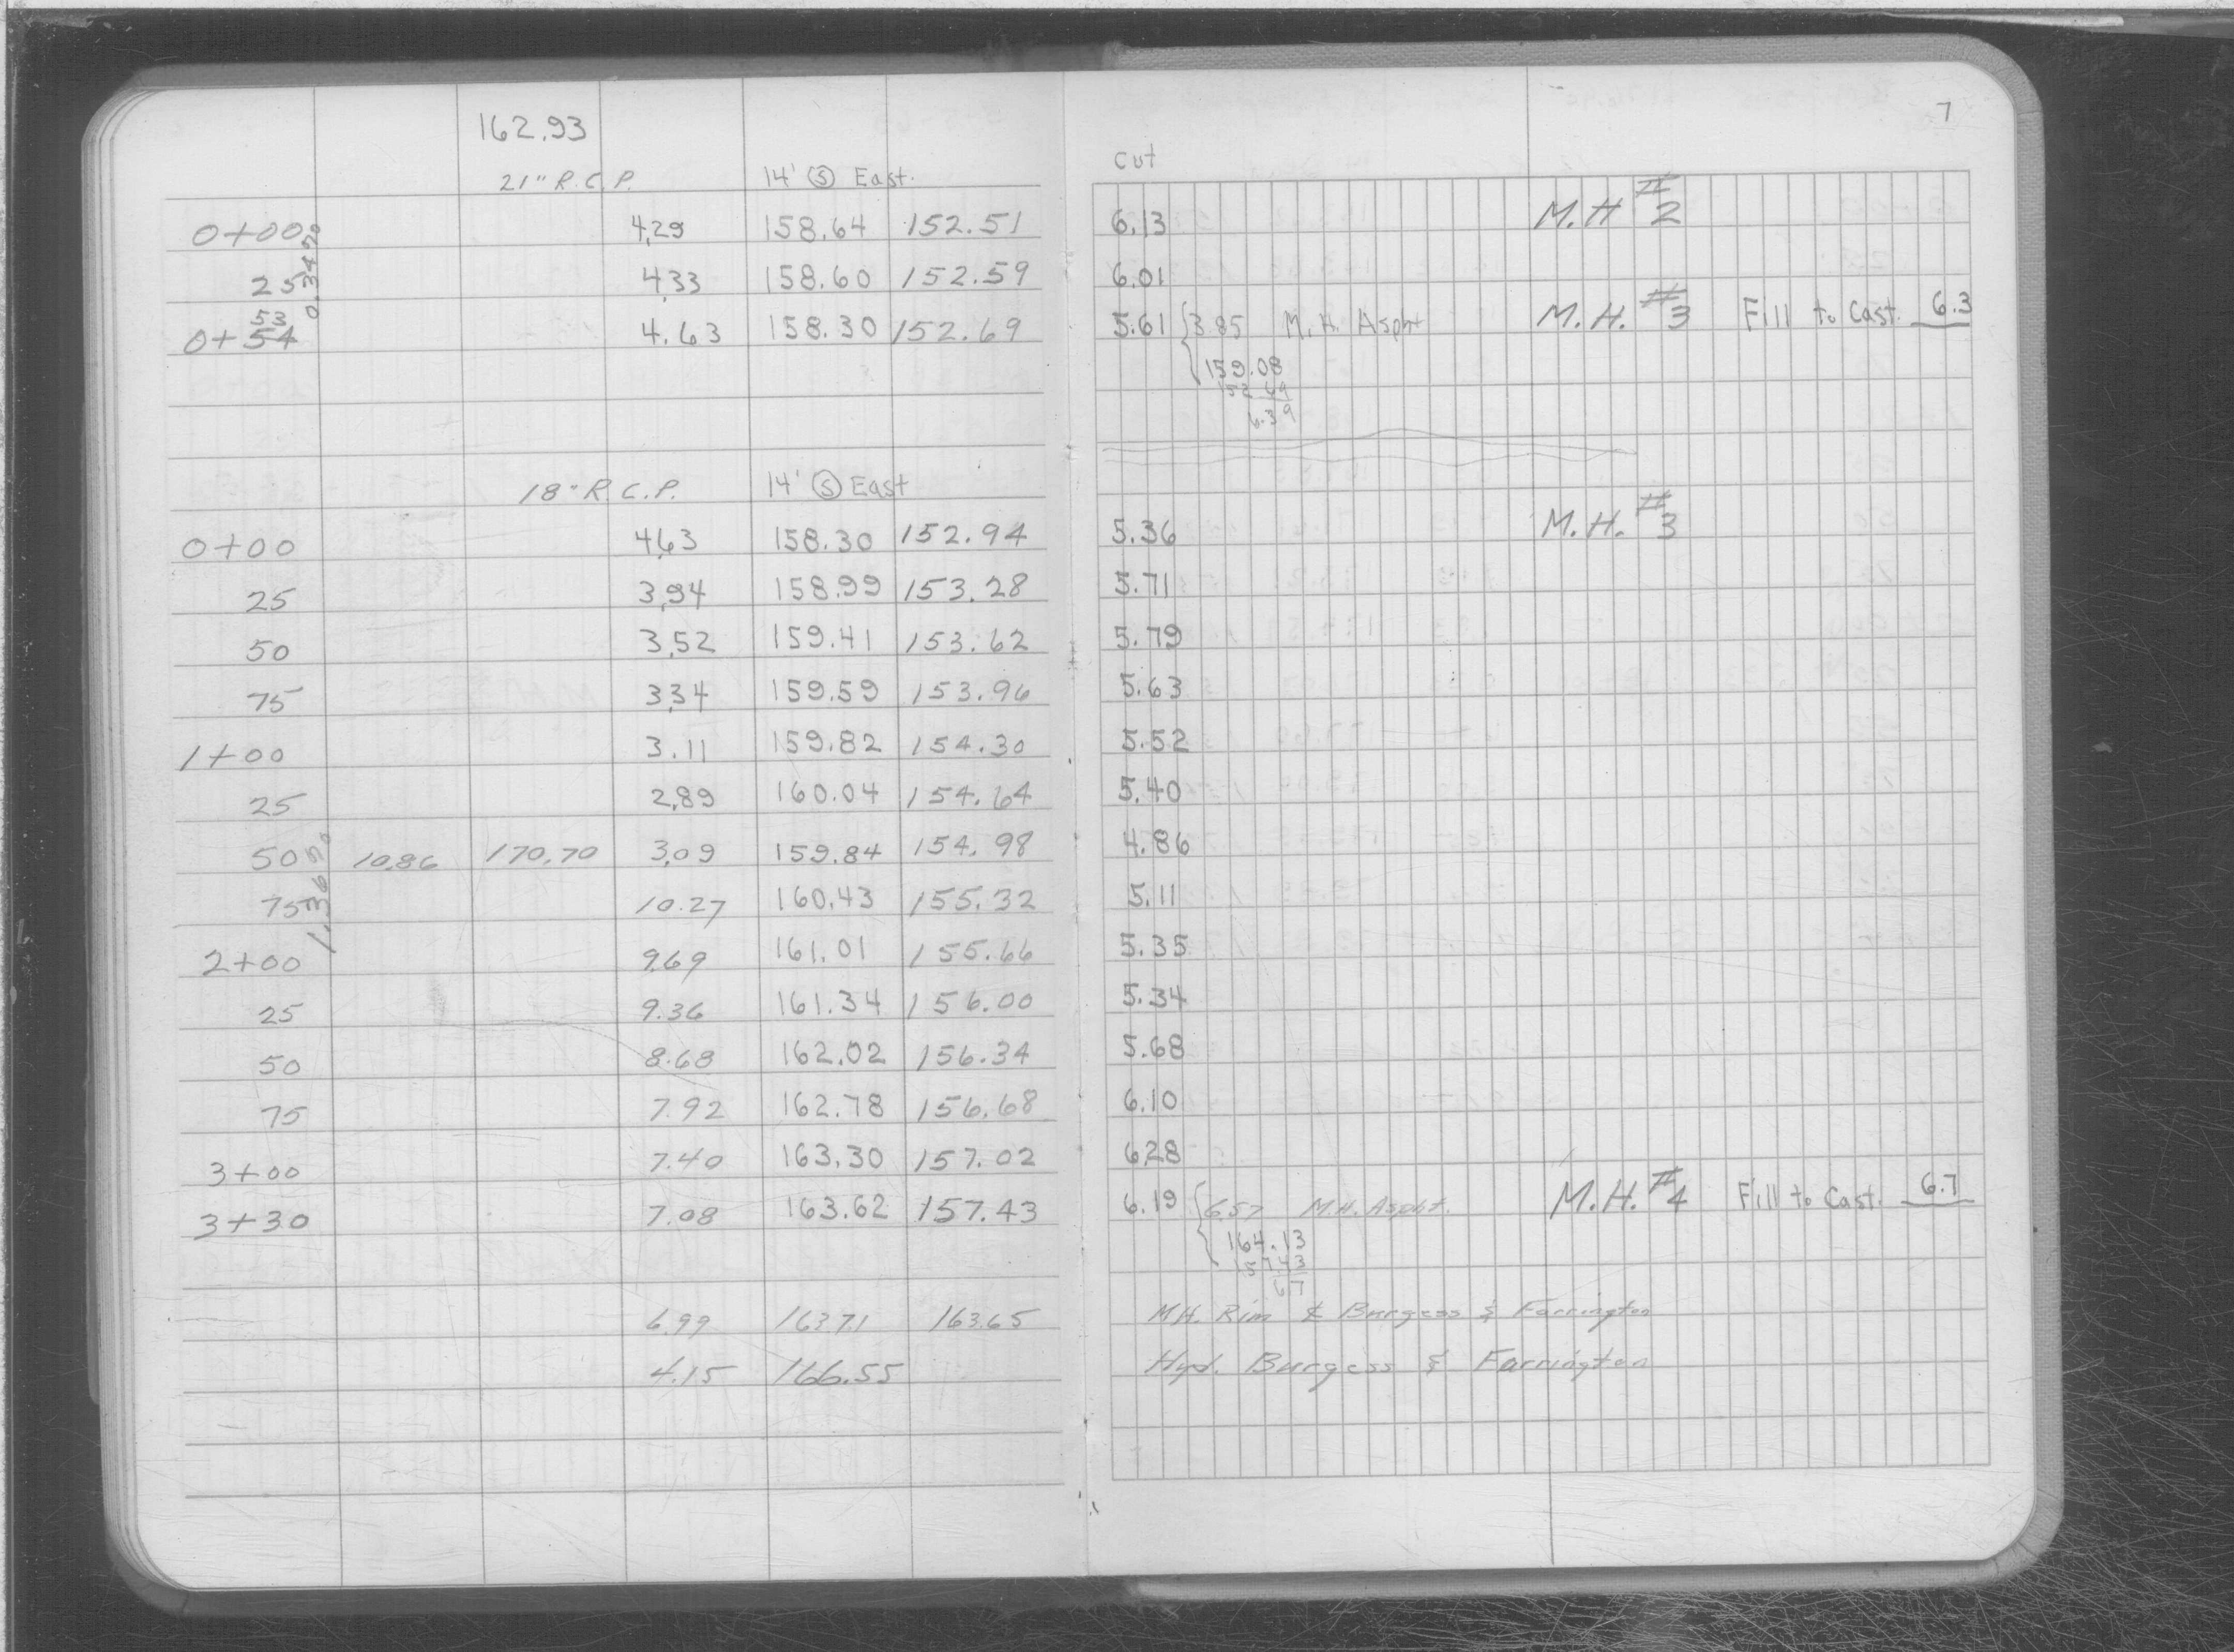 7
162.93
cut
21" R.C.P. 14' Ⓢ East.
0+00 4.29 158.64 152.51 6.13 M.H #2
0.34%
25 4.33 158.60 152.59 6.01
53
0+54 4.63 158.30 152.69 5.61 {3.85 M.H. Aspht M.H. #3 Fill to Cast. 6.3
159.08
152.69
6.39
18" R.C.P. 14' Ⓢ East
0+00 4.63 158.30 152.94 5.36 M.H. #3
25 3.94 158.99 153.28 5.71
50 3.52 159.41 153.62 5.79
75 3.34 159.59 153.96 5.63
1+00 3.11 159.82 154.30 5.52
25 2.89 160.04 154.64 5.40
50 10.86 170.70 3.09 159.84 154.98 4.86
1.36%
75 10.27 160.43 155.32 5.11
2+00 9.69 161.01 155.66 5.35
25 9.36 161.34 156.00 5.34
50 8.68 162.02 156.34 5.68
75 7.92 162.78 156.68 6.10
3+00 7.40 163.30 157.02 6.28
3+30 7.08 163.62 157.43 6.19 {6.57 M.H. Aspht. M.H. #4 Fill to Cast. 6.7
164.13
157.43
6.7
6.99 163.71 163.65 M.H. Rim ℄ Burgess & Farrington
4.15 166.55 Hyd. Burgess & Farrington